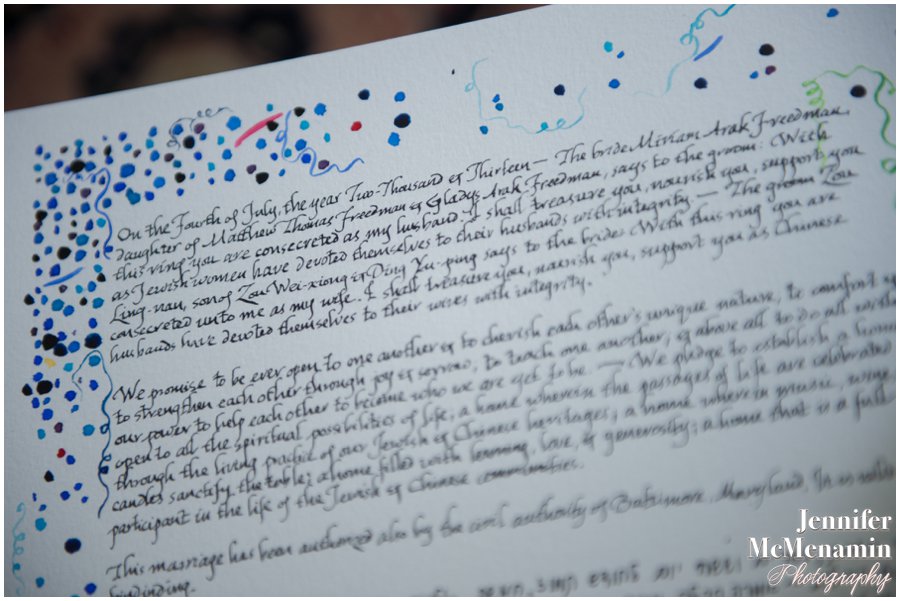 On the Fourth of July, the year Two-Thousand & Thirteen — The bride Miriam Arak Freedman,
daughter of Matthew Thomas Freedman & Gladys Arak Freedman, says to the groom: With
this ring you are consecreted as my husband. I shall treasure you, nourish you, support you
as Jewish women have devoted themselves to their husbands with integrity. — The groom Zou
Ling-nan, son of Zou Wei-xiong & Ding Yu-ping says to the bride: With this ring you are
consecreted unto me as my wife. I shall treasure you, nourish you, support you as Chinese
husbands have devoted themselves to their wives with integrity.
We promise to be ever open to one another & to cherish each other's unique nature, to comfort &
to strengthen each other through joy & sorrow, to teach one another, & above all to do all within
our power to help each other to become who we are yet to be. — We pledge to establish a home
open to all the spiritual possibilities of life; a home wherein the passages of life are celebrated
through the living practice of our Jewish & Chinese heritages; a home wherein music, wine,
candles sanctify the table; a home filled with learning, love, & generosity; a home that is a full
participant in the life of the Jewish & Chinese communities.
This marriage has been authorized also by the civil authority of Baltimore, Maryland. It is valid
bindinding.
Jennifer
McMenamin
Photography